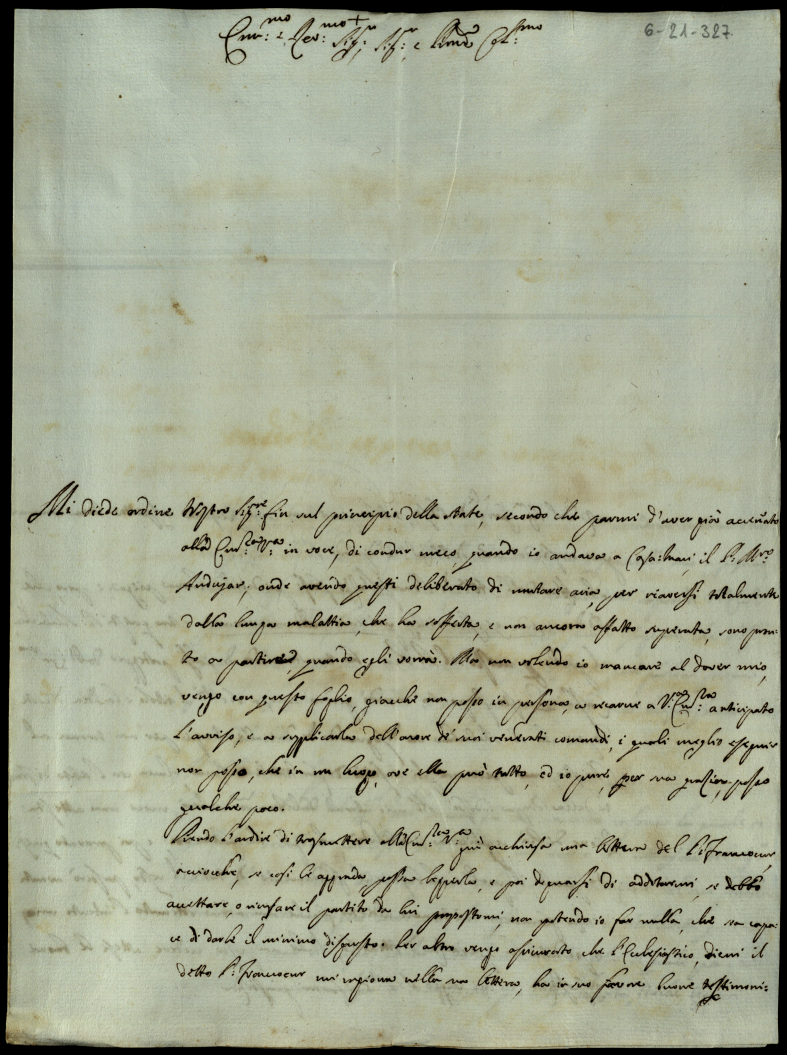 Em.mo e Rev.mo Sig.r Sig.r e Prone Col.mo
6-21-327
Mi diede ordine Nostro Sig.re fin sul principio della state, secondo che parmi d'aver già accennato
alla Em.za V.a in voce, di condur meco, quando io andava a Casa:mari il P. M.ro
Andujar; onde avendo questi deliberato di mutare aria, per riaversi totalmente
dalla lunga malattia, che ha sofferta, e non ancora affatto superata, sono pron-
to a partire, quando egli vorrà. Ma non volendo io mancare al dover mio,
vengo con questo foglio, giacché non posso in persona, a recarne a V. Em.za anticipato
l'avviso, e a supplicarla dell'onore de' suoi venerati comandi, i quali meglio eseguir
non posso, che in un luogo, ove ella può tutto, ed io pure, per sua grazia, posso
qualche poco.
Prendo l'ardire di trasmettere alla Em.za V.a qui acchiusa una lettera del P. Francoeur,
acciocchè, se così le aggrada, possa leggerla, e poi degnarsi di additarmi, se debbo
accettare, o rinfusare il partito da lui propostomi, non potendo io far nulla, che sia capa-
ce di darle il minimo disgusto. Per altro vengo assicurato che l'Ecclesiastico, di cui il
detto P. Francoeur mi ragiona nella sua lettera, ha in suo favore buone testimoni=